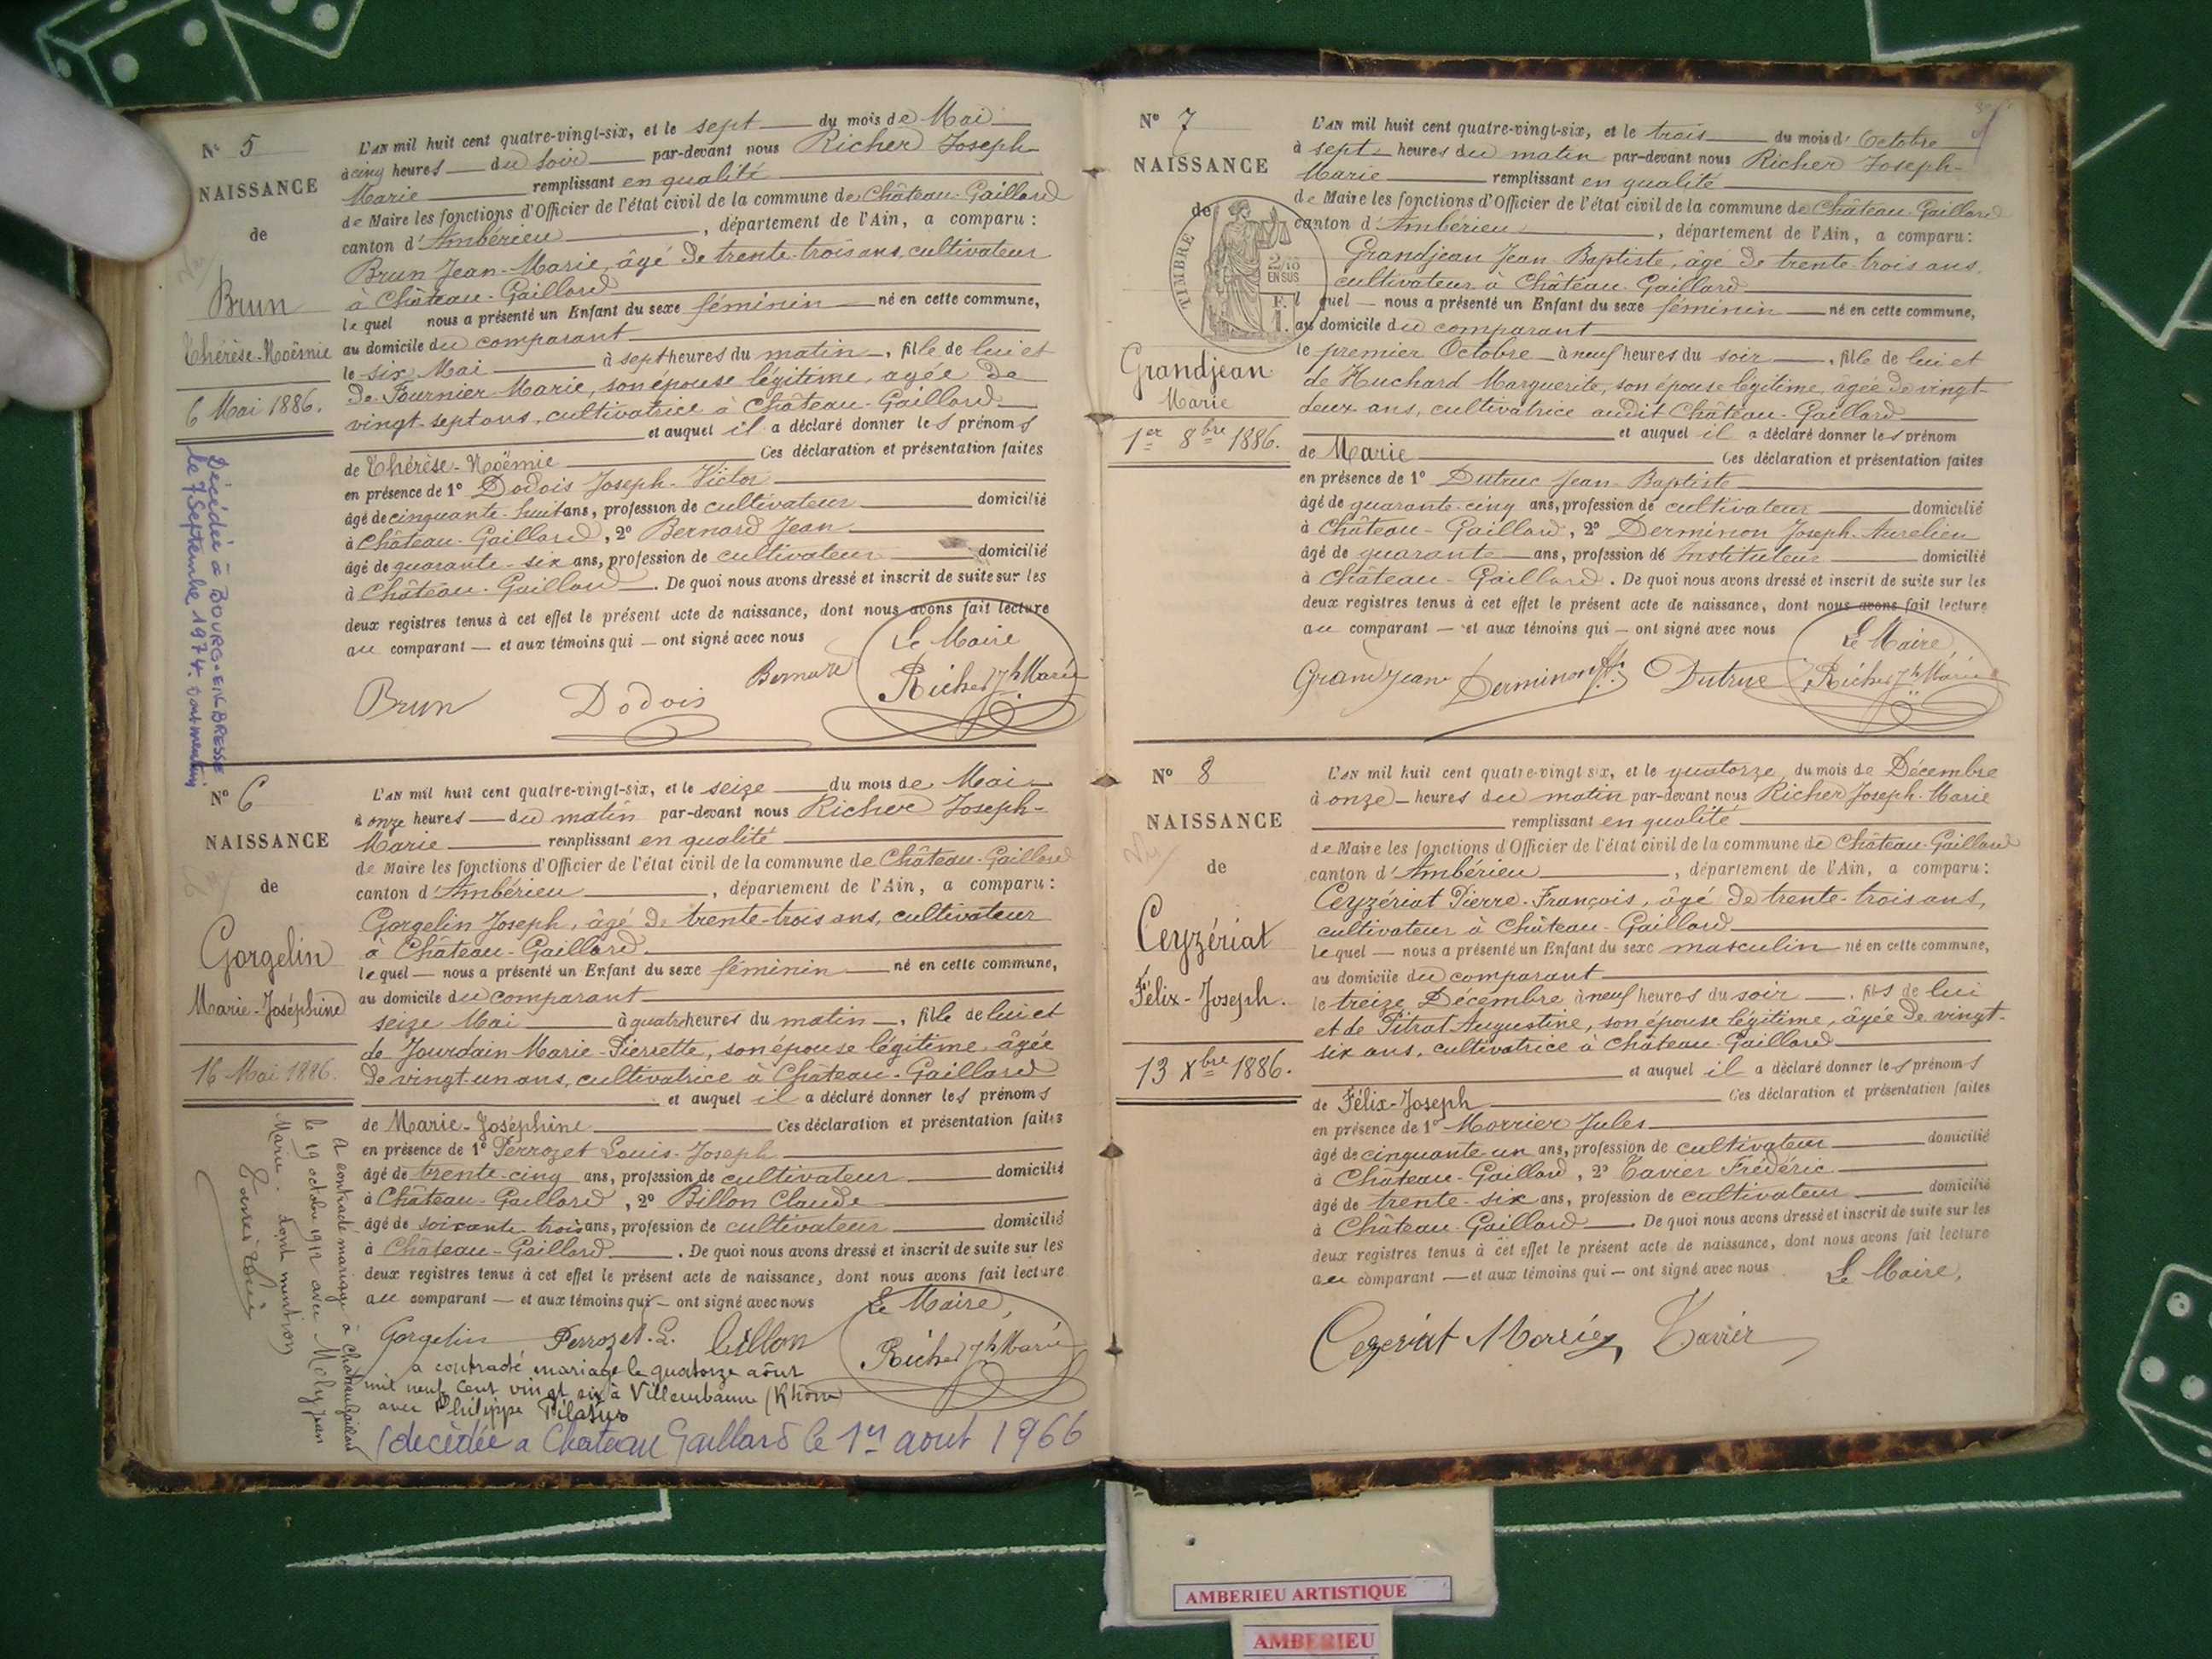 N° 5
NAISSANCE
de
Brun
Thérèse-Noëmie
6 Mai 1886.
Décédée à BOURG-EN-BRESSE
le 7 Septembre 1974. Dont mention
L'AN mil huit cent quatre-vingt-six, et le sept du mois de Mai
à cinq heures du soir par-devant nous Richer Joseph
Marie remplissant en qualité
de Maire les fonctions d'Officier de l'état civil de la commune de Château-Gaillard
canton d'Ambérieu, département de l'Ain, a comparu:
Brun Jean-Marie, âgé de trente-trois ans, cultivateur
à Château-Gaillard
lequel nous a présenté un Enfant du sexe féminin né en cette commune,
au domicile du comparant
le six Mai à sept heures du matin, fille de lui et
de Fournier Marie, son épouse légitime, agée de
vingt-sept ans, cultivatrice à Château-Gaillard
et auquel il a déclaré donner les prénoms
de Thérèse-Noëmie Ces déclaration et présentation faites
en présence de 1° Dodois Joseph-Victor
âgé de cinquante-huit ans, profession de cultivateur domicilié
à Château-Gaillard, 2° Bernard Jean
âgé de quarante-six ans, profession de cultivateur domicilié
à Château-Gaillard. De quoi nous avons dressé et inscrit de suite sur les
deux registres tenus à cet effet le présent acte de naissance, dont nous avons fait lecture
au comparant — et aux témoins qui — ont signé avec nous
Le Maire
Brun Dodois Bernard Richer Jh Marie
N° 6
NAISSANCE
de
Gorgelin
Marie-Joséphine
16 Mai 1886.
A contracté mariage à Chateaugaillard
le 19 octobre 1912 avec Mély Jean
Marie. dont mention
L'AN mil huit cent quatre-vingt-six, et le seize du mois de Mai
à onze heures du matin par-devant nous Richer Joseph-
Marie remplissant en qualité
de Maire les fonctions d'Officier de l'état civil de la commune de Château-Gaillard
canton d'Ambérieu, département de l'Ain, a comparu:
Gorgelin Joseph, âgé de trente-trois ans, cultivateur
à Château-Gaillard
lequel — nous a présenté un Enfant du sexe féminin né en cette commune,
au domicile du comparant
seize Mai à quatre heures du matin, fille de lui et
de Jourdain Marie-Pierrette, son épouse légitime, âgée
de vingt-un ans, cultivatrice à Château-Gaillard
et auquel il a déclaré donner les prénoms
de Marie-Joséphine Ces déclaration et présentation faites
en présence de 1° Perrozet Louis-Joseph
âgé de trente-cinq ans, profession de cultivateur domicilié
à Château-Gaillard, 2° Billon Claude
âgé de soixante-trois ans, profession de cultivateur domicilié
à Château-Gaillard. De quoi nous avons dressé et inscrit de suite sur les
deux registres tenus à cet effet le présent acte de naissance, dont nous avons fait lecture
au comparant — et aux témoins qui — ont signé avec nous
Le Maire,
Gorgelin Perrozet. L. Billon Richer Jh Marie
a contracté mariage le quatorze août
mil neuf cent vingt six à Villeurbanne (Rhône)
avec Philippe Pilasus
décédée a Chateau Gaillard le 1er aout 1966
N° 7
NAISSANCE
de
TIMBRE
2/10
EN SUS
Grandjean
Marie
1er 8bre 1886.
L'AN mil huit cent quatre-vingt-six, et le trois du mois d'Octobre
à sept heures du matin par-devant nous Richer Joseph-
Marie remplissant en qualité
de Maire les fonctions d'Officier de l'état civil de la commune de Château-Gaillard
canton d'Ambérieu, département de l'Ain, a comparu:
Grandjean Jean-Baptiste, âgé de trente-trois ans,
cultivateur à Château-Gaillard
lequel — nous a présenté un Enfant du sexe féminin né en cette commune,
au domicile du comparant
le premier Octobre à neuf heures du soir, fille de lui et
de Huchard Marguerite, son épouse légitime, âgée de vingt-
deux ans, cultivatrice audit Château-Gaillard
et auquel il a déclaré donner les prénom
de Marie Ces déclaration et présentation faites
en présence de 1° Dutruc Jean-Baptiste
âgé de quarante-cinq ans, profession de cultivateur domicilié
à Château-Gaillard, 2° Derminon Joseph-Aurelien
âgé de quarante ans, profession de Instituteur domicilié
à Château-Gaillard. De quoi nous avons dressé et inscrit de suite sur les
deux registres tenus à cet effet le présent acte de naissance, dont nous avons fait lecture
au comparant — et aux témoins qui — ont signé avec nous
Le Maire,
Grandjean Derminon Dutruc Richer Jh Marie
N° 8
NAISSANCE
de
Ceyzériat
Félix-Joseph.
13 Xbre 1886.
L'AN mil huit cent quatre-vingt six, et le quatorze du mois de Décembre
à onze heures du matin par-devant nous Richer Joseph-Marie
remplissant en qualité
de Maire les fonctions d'Officier de l'état civil de la commune de Château-Gaillard
canton d'Ambérieu, département de l'Ain, a comparu:
Ceyzériat Pierre-François, âgé de trente-trois ans,
cultivateur à Château-Gaillard
lequel — nous a présenté un Enfant du sexe masculin né en cette commune,
au domicile du comparant
le treize Décembre à neuf heures du soir, fils de lui
et de Pitrat Augustine, son épouse légitime, âgée de vingt-
six ans, cultivatrice à Château-Gaillard
et auquel il a déclaré donner les prénoms
de Félix-Joseph Ces déclaration et présentation faites
en présence de 1° Morrier Jules
âgé de cinquante-un ans, profession de cultivateur domicilié
à Château-Gaillard, 2° Tavier Frédéric
âgé de trente-six ans, profession de cultivateur domicilié
à Château-Gaillard. De quoi nous avons dressé et inscrit de suite sur les
deux registres tenus à cet effet le présent acte de naissance, dont nous avons fait lecture
au comparant — et aux témoins qui — ont signé avec nous
Le Maire,
Ceyzeriat Morrier Tavier
AMBERIEU ARTISTIQUE
AMBERIEU